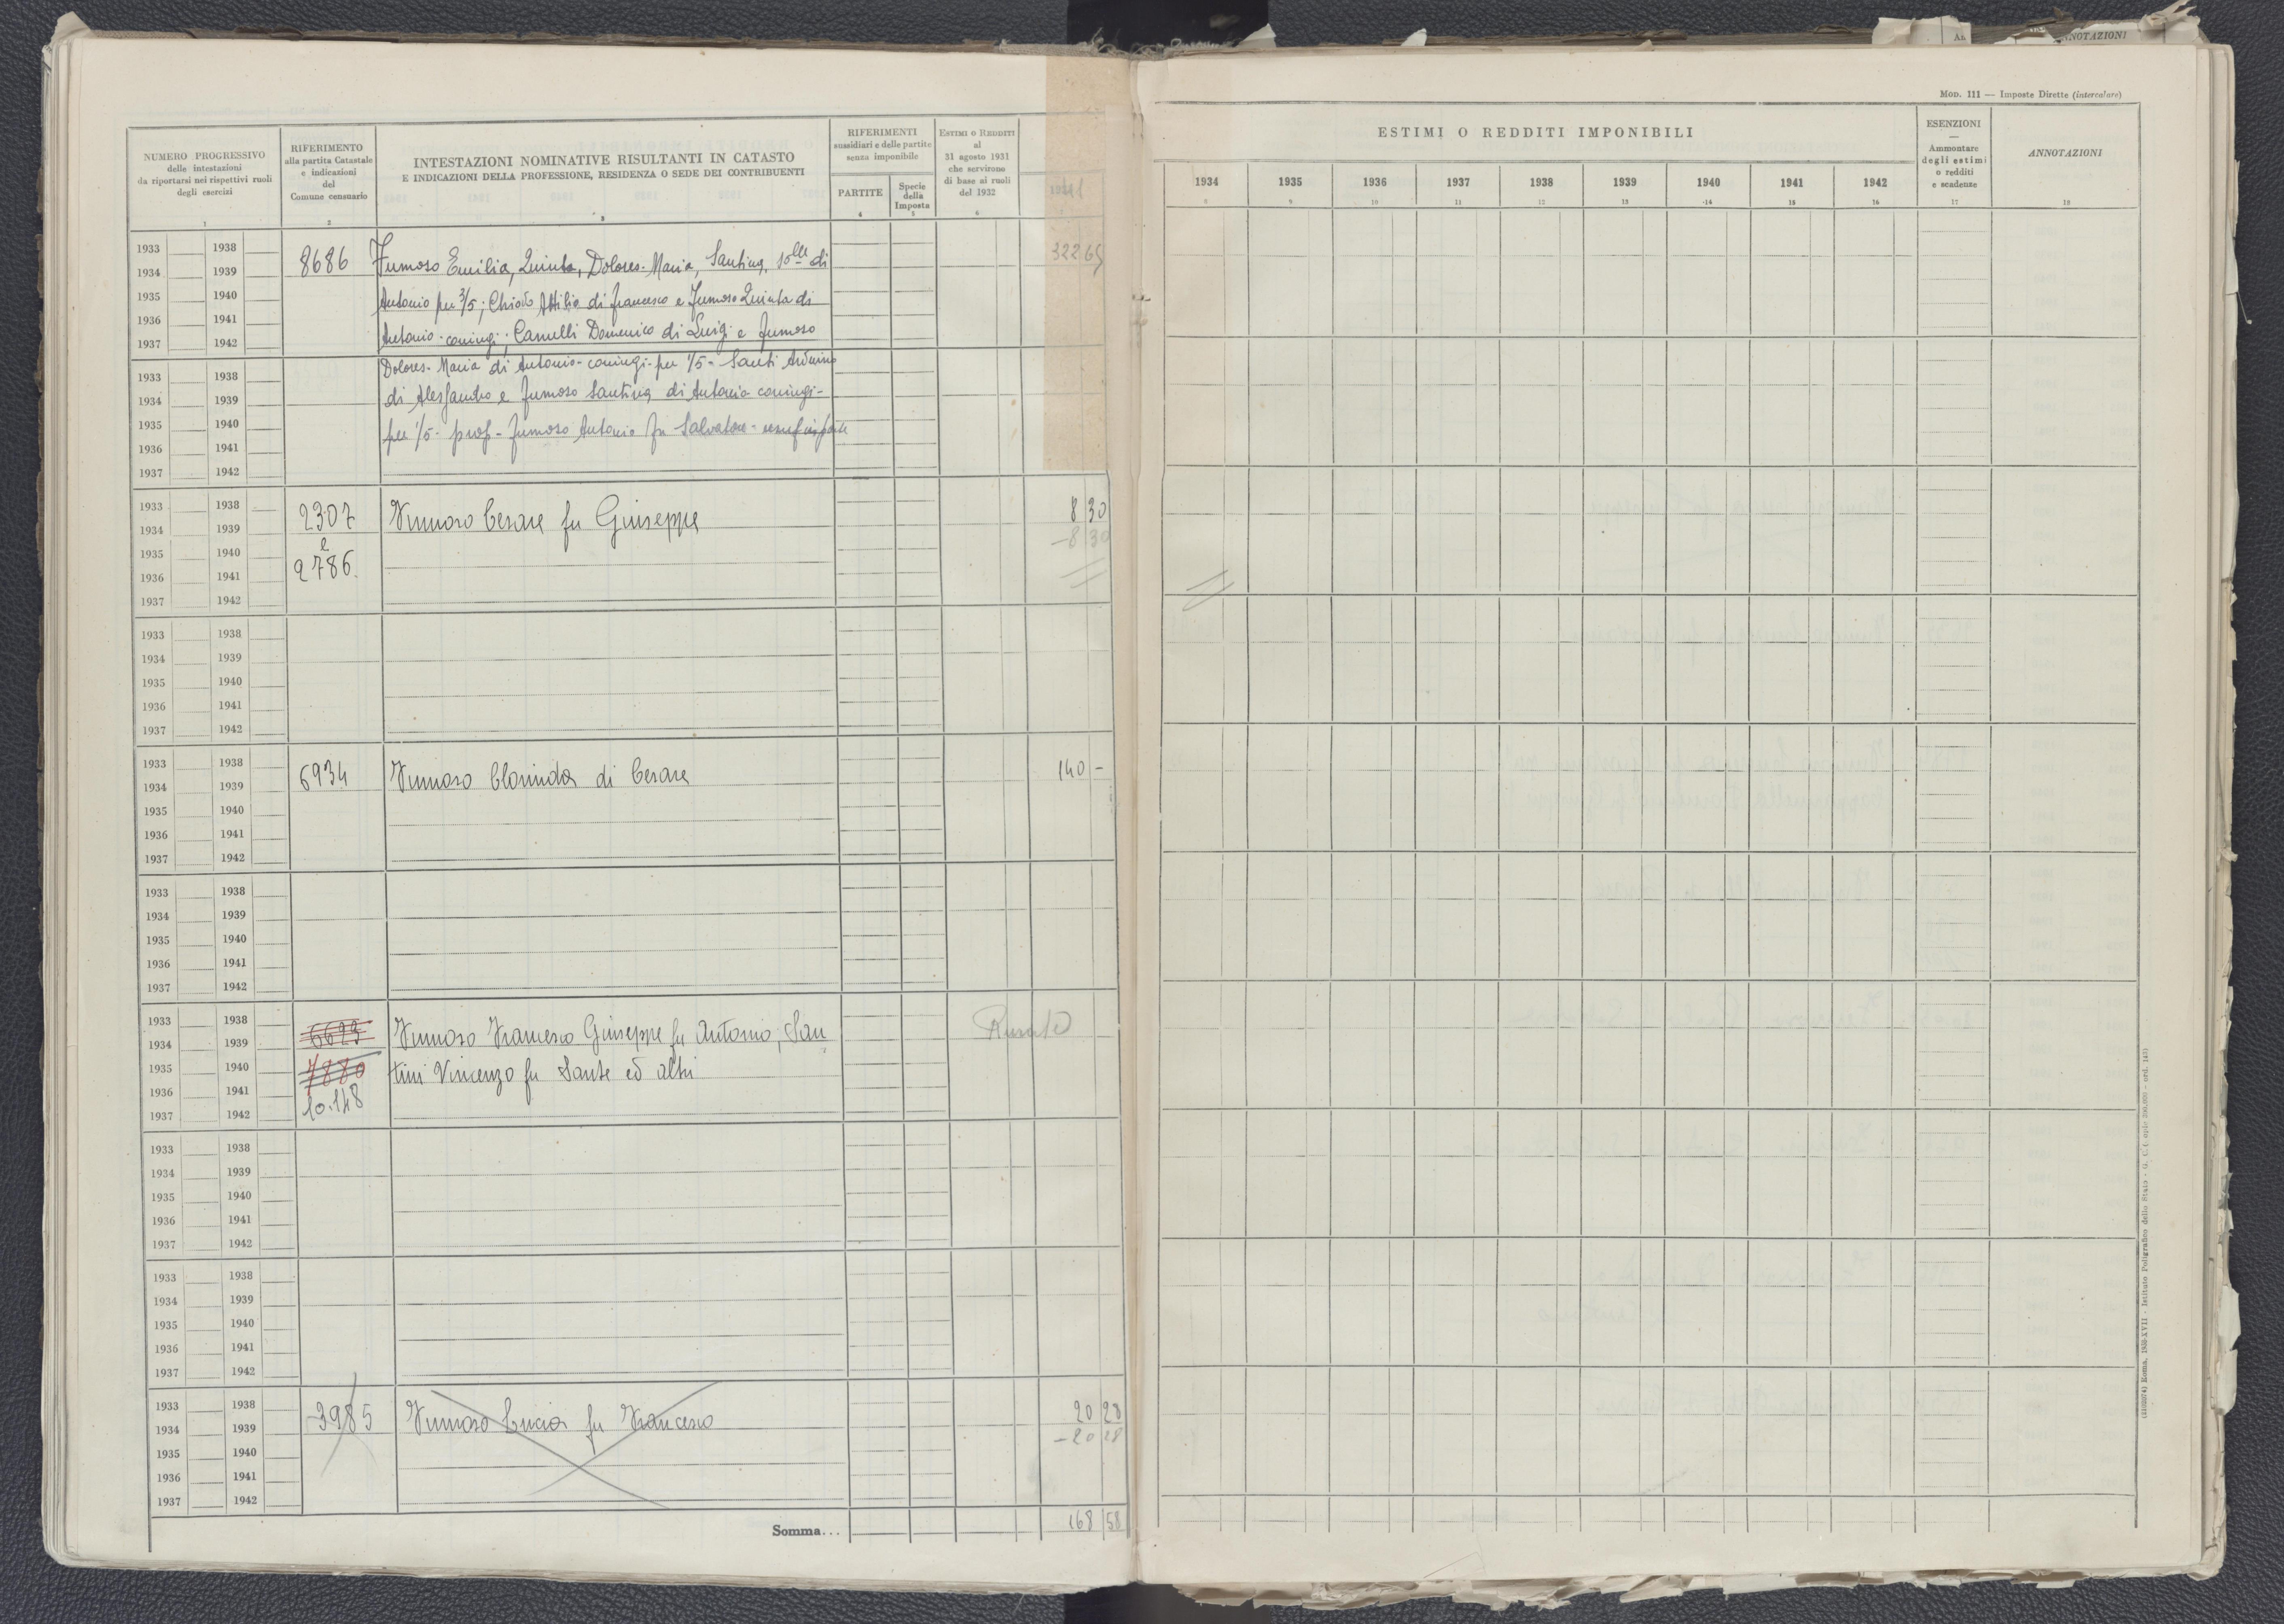 ANNOTAZIONI
MOD. 111 — Imposte Dirette (intercalare)
NUMERO PROGRESSIVO
delle intestazioni
da riportarsi nei rispettivi ruoli
degli esercizi
1
RIFERIMENTO
alla partita Catastale
e indicazioni
del
Comune censuario
2
INTESTAZIONI NOMINATIVE RISULTANTI IN CATASTO
E INDICAZIONI DELLA PROFESSIONE, RESIDENZA O SEDE DEI CONTRIBUENTI
3
RIFERIMENTI
sussidiari e delle partite
senza imponibile
PARTITE
4
Specie
della
Imposta
5
ESTIMI O REDDITI
al
31 agosto 1931
che servirono
di base ai ruoli
del 1932
6
ESTIMI O REDDITI IMPONIBILI
1934 1935 1936 1937 1938 1939 1940 1941 1942
8 9 10 11 12 13 14 15 16
ESENZIONI
—
Ammontare
degli estimi
o redditi
e scadenze
17
ANNOTAZIONI
18
1933 1938 8686 Fumoso Emilia, Quinta, Dolores-Maria, Santina, solle di 322 65
1934 1939
1935 1940 Antonio per 3/5; Attilio di Francesco e Fumoso Quinta di
1936 1941
1937 1942 Antonio-coniugi; Camelli Domenico di Luigi e Fumoso
1933 1938 Dolores-Maria di Antonio-coniugi-per 1/5- Santi
1934 1939 di Alessandro e Fumoso Santina di Antonio coniugi-
1935 1940 per 1/5- prop- Fumoso Antonio fu Salvatore-
1936 1941
1937 1942
1933 1938 2307 Fumoso Cesare fu Giuseppe 8 30
1934 1939 -8 30
1935 1940 e
1936 1941 2786
1937 1942
1933 1938
1934 1939
1935 1940
1936 1941
1937 1942
1933 1938 6934 Fumoso Clorinda di Cesare 140 -
1934 1939
1935 1940
1936 1941
1937 1942
1933 1938
1934 1939
1935 1940
1936 1941
1937 1942
1933 1938 6625 Fumoso Francesco Giuseppe fu Antonio, San
1934 1939
1935 1940 7880 tini Vincenzo fu Sante ed altri
1936 1941
1937 1942 10.148
1933 1938
1934 1939
1935 1940
1936 1941
1937 1942
1933 1938
1934 1939
1935 1940
1936 1941
1937 1942
1933 1938 3985 Fumoso Lucia fu Francesco 20 28
1934 1939 -20 28
1935 1940
1936 1941
1937 1942
Somma... 168 58